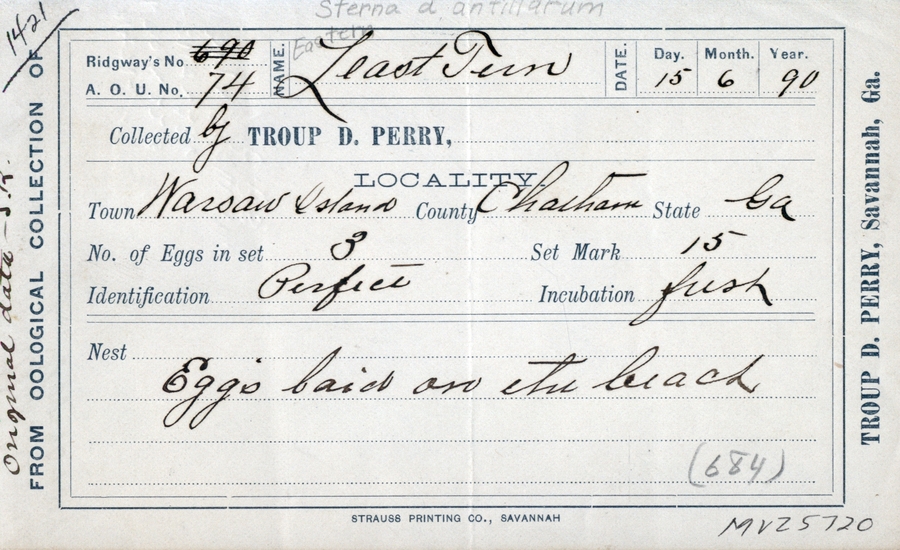 1421
Sterna a antillarum
Ridgway's No. 690
A. O. U. No. 74
NAME. Eastern Least Tern
DATE. Day. Month. Year.
15 6 90
Collected by TROUP D. PERRY,
LOCALITY.
Town Warsaw Island County Chatham State Ga
No. of Eggs in set 3 Set Mark 15
Identification Perfect Incubation fresh
Nest
Eggs laid on the beach
(684)
STRAUSS PRINTING CO., SAVANNAH
MVZ 5720
Original data - S.R.
FROM OOLOGICAL COLLECTION OF
TROUP D. PERRY, Savannah, Ga.